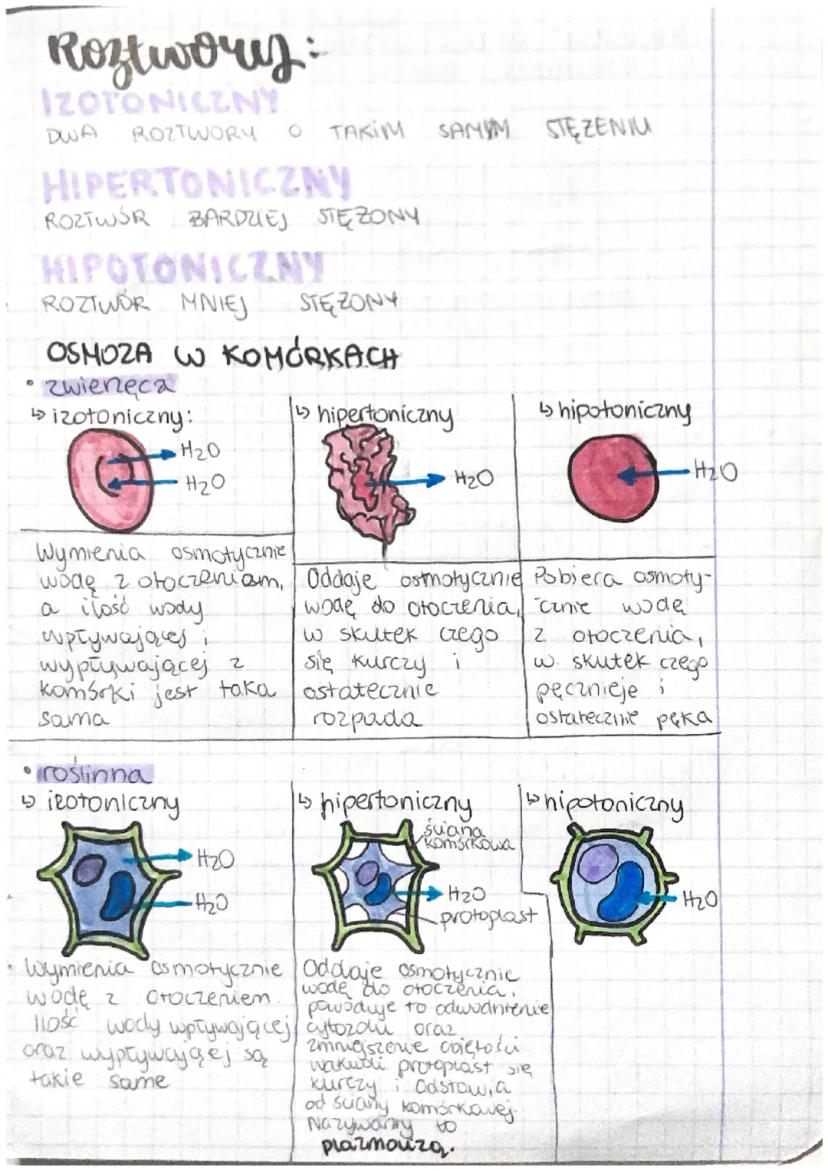 Roztwory:
IZOTONICZNY
DWA ROZTWORY O TAKIM SAMYM STĘŻENIU
HIPERTONICZNY
ROZTWÓR BARDZIEJ STĘŻONY
HIPOTONICZNY
ROZTWÓR MNIEJ STĘŻONY
OSMOZA W KOMÓRKACH
• zwierzęca
↳ izotoniczny:
H2O
H2O
Wymienia osmotycznie
wodę z otoczeniam,
a ilość wody
wpływającej i
wypływającej z
komórki jest taka
sama
↳ hipertoniczny
H2O
Oddaje osmotycznie
wodę do otoczenia,
w skutek czego
się kurczy i
ostatecznie
rozpada
↳ hipotoniczny
H2O
Pobiera osmoty-
cznie wodę
z otoczenia,
w skutek czego
pęcznieje i
ostatecznie pęka
• roślinna
↳ izotoniczny
H2O
H2O
• Wymienia osmotycznie
wodę z otoczeniem
Ilość wody wpływającej
oraz wypływającej są
takie same
↳ hipertoniczny
ściana
komórkowa
H2O
protoplast
Oddaje osmotycznie
wodę do otoczenia,
powoduje to odwodnienie
cytozolu oraz
zmniejszenie objętości
wakuoli protoplast się
kurczy i odstawia
od ściany komórkowej.
Nazywamy to
plazmolizą.
↳ hipotoniczny
H2O